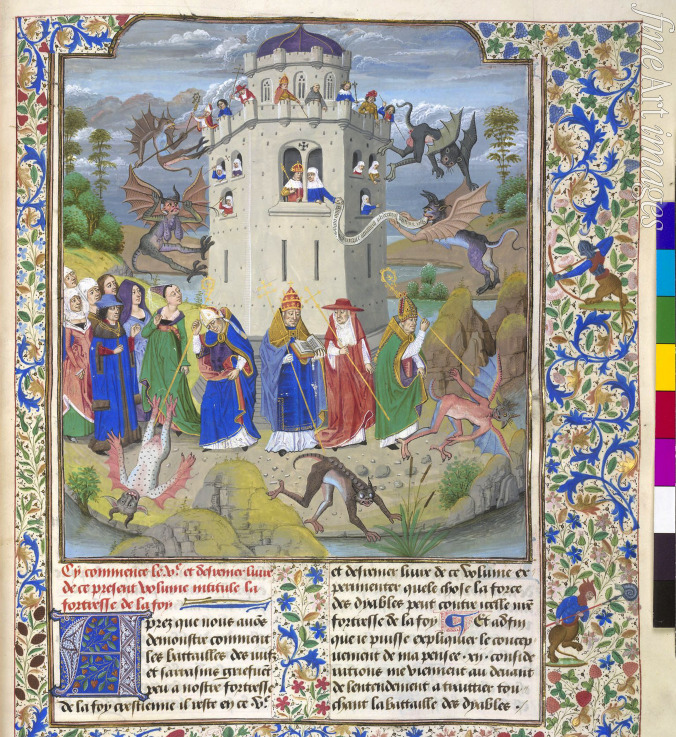 Cy commence le .Vᵉ. et desrenier liure
de ce present volume intitule la
fortresse de la foy
Apres que nous auõs
demonstre comment
les batailles des iuifz
et sarrasins griefuent
peu a nostre fortresse
de la foy crestienne il reste en ce .Vᵉ.
et desrenier liure de ce volume ex
perimenter quele chose la force
des dyables peut contre icelle nr̃e
fortresse de la foy ¶ Et adfin
que ie puisse expliquier le concep
uement de ma pensee .xij. consid
erations me viennent au deuant
de lentendement a traittier tou
chant la bataille des dyables .
fine Art images